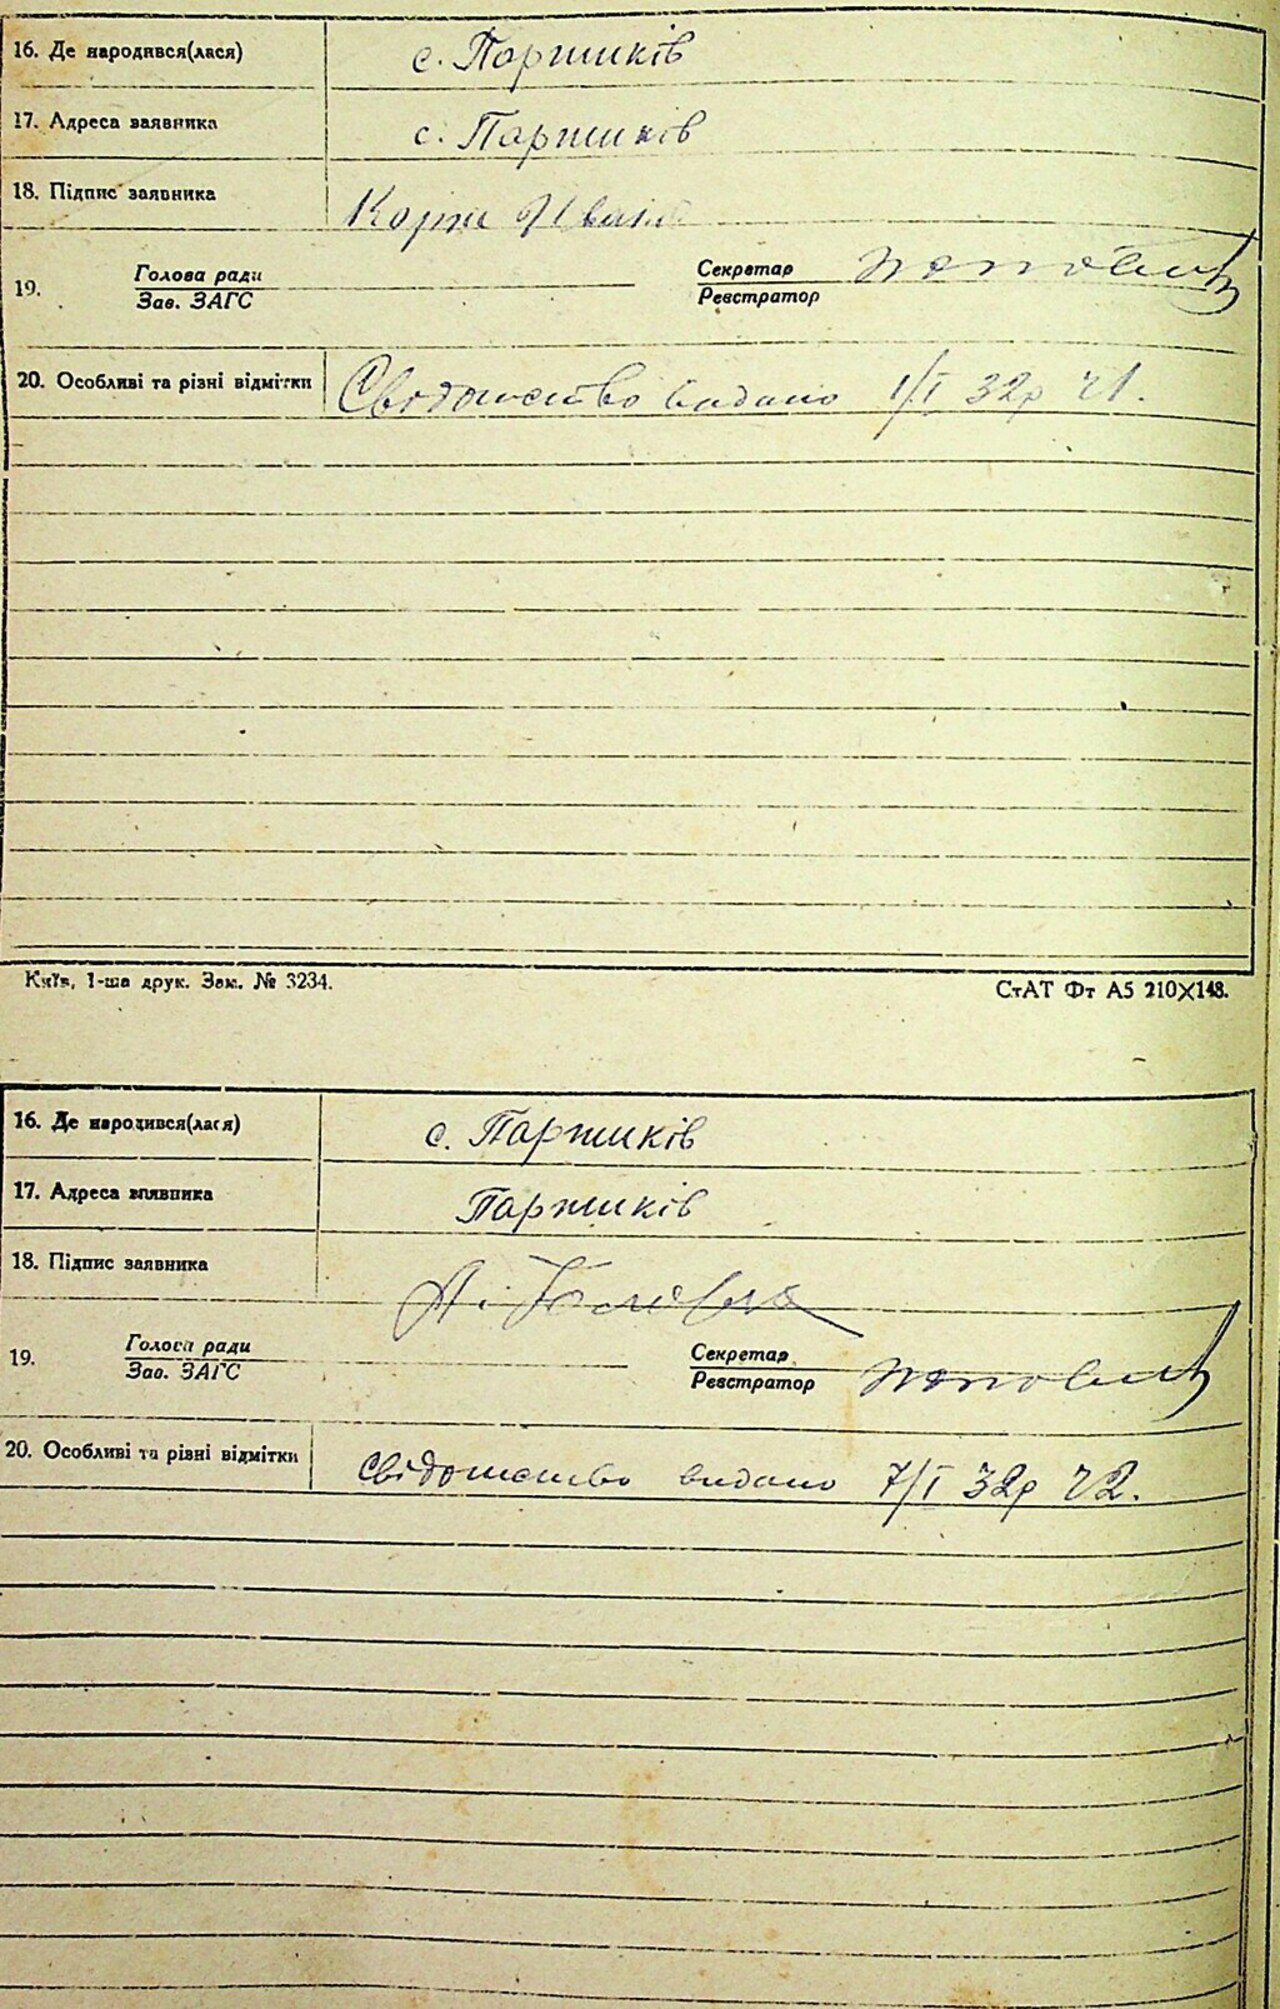 16. Де народився(лася) с. Паржиків
17. Адреса заявника с. Паржиків
18. Підпис заявника Корж Иван
19. Голова ради Секретар Попович
Зав. ЗАГС Реєстратор
20. Особливі та різні відмітки Свідоцтво видано 1/I 32р ч1.
Київ, 1-ша друк. Зам. № 3234. СтАТ Фт А5 210×148.
16. Де народився(лася) с. Паржиків
17. Адреса заявника Паржиків
18. Підпис заявника
19. Голова ради Секретар Попович
Зав. ЗАГС Реєстратор
20. Особливі та різні відмітки Свідоцтво видано 7/I 32р ч2.